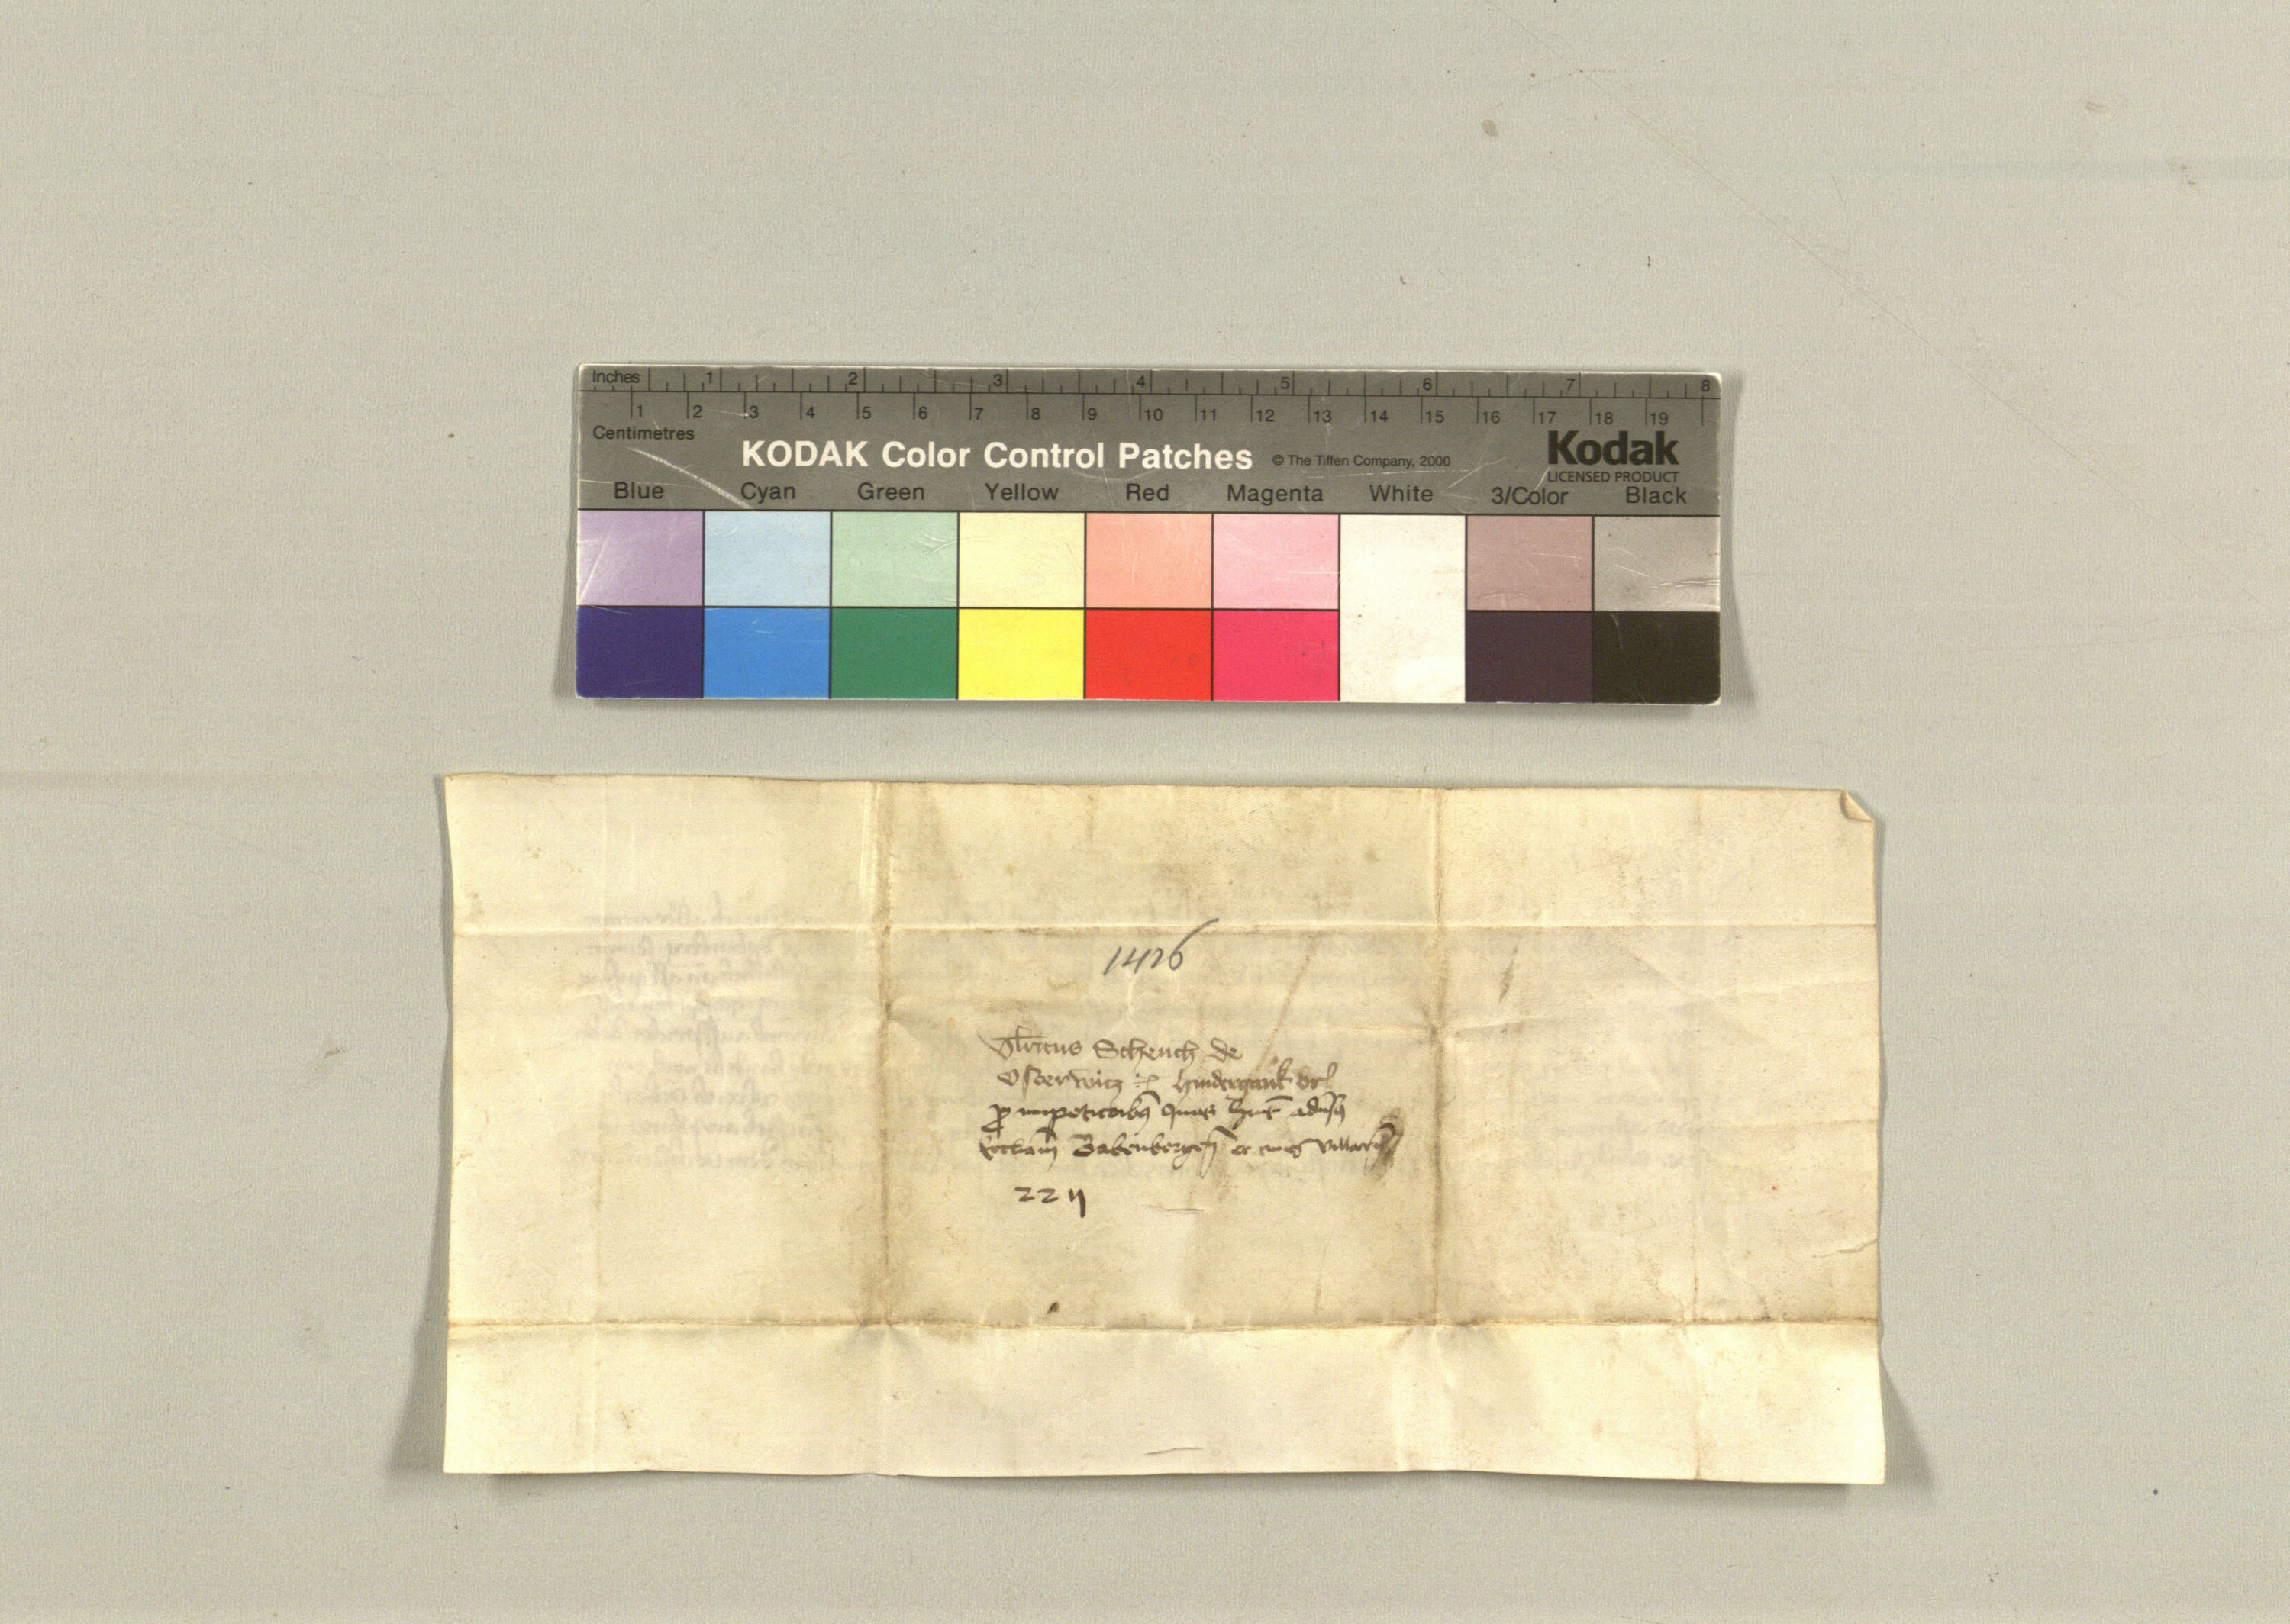 Inches 1 2 3 4 5 6 7 8
1 2 3 4 5 6 7 8 9 10 11 12 13 14 15 16 17 18 19
Centimetres
KODAK Color Control Patches © The Tiffen Company, 2000 Kodak
LICENSED PRODUCT
Blue Cyan Green Yellow Red Magenta White 3/Color Black
1426
Ulricus Schench de
Osterwicz hindergank br
p impeticoibus quas adusus
Babenbergen et eius
22